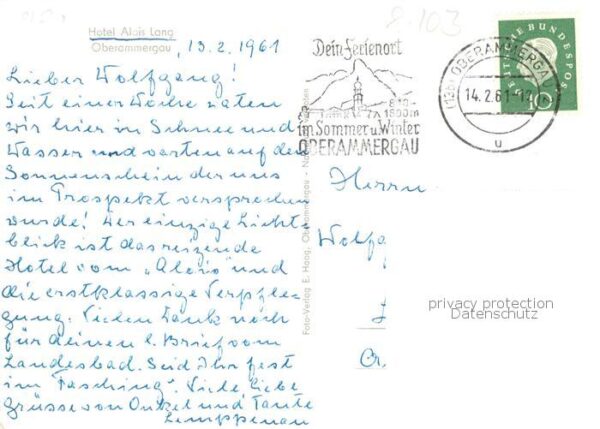 Hotel Alois Lang
Oberammergau
13.2.1961
Lieber Wolfgang!
Seit einer Woche waten
wir hier in Schnee und
Wasser und warten auf den
Sonnenschein der uns
im Prospekt versprochen
wurde! Der einzige Licht
blick ist das reizende
Hotel vom "Alois" und
die erstklassige Verpfle-
gung. Vielen Dank noch
für deinen l. Brief vom
Landesbad. Seid Ihr fest
im "Fasching". Viele liebe
Grüsse von Onkel und Tante
Lemppenau
Foto-Verlag E. Haag, Oberammergau
8.103
Dein Ferienort
im Sommer u. Winter
OBERAMMERGAU
(13b) OBERAMMERGAU
14.2.61
u
DEUTSCHE BUNDESPOST
10
Herrn
Wolfg
privacy protection
Datenschutz